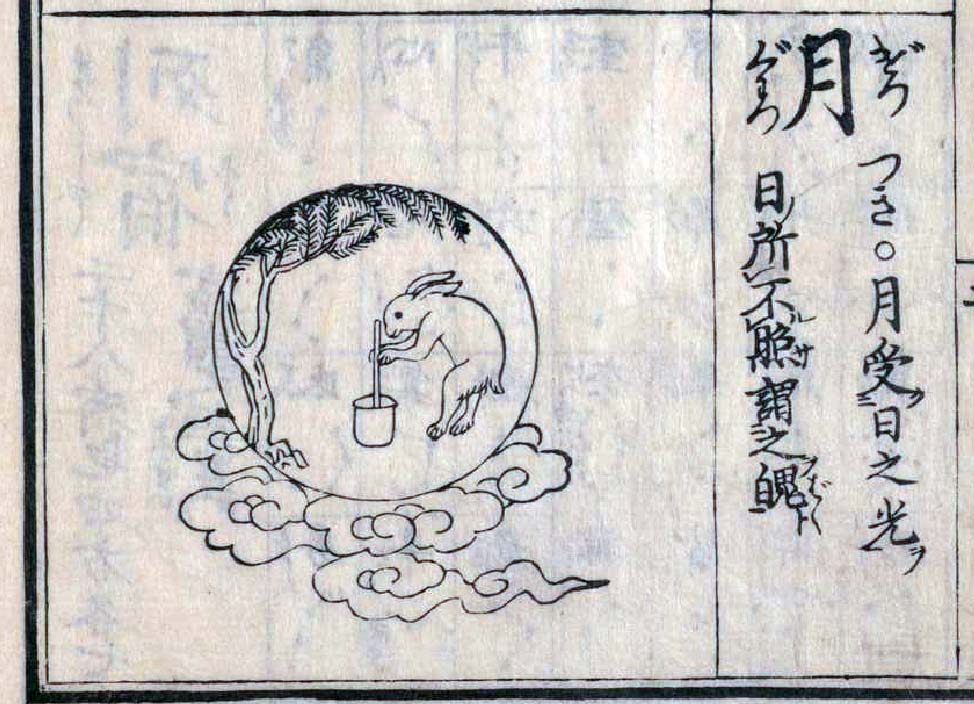 月
ぐわつ
つき○月受日之光ヲ
日所不照サ謂之魄